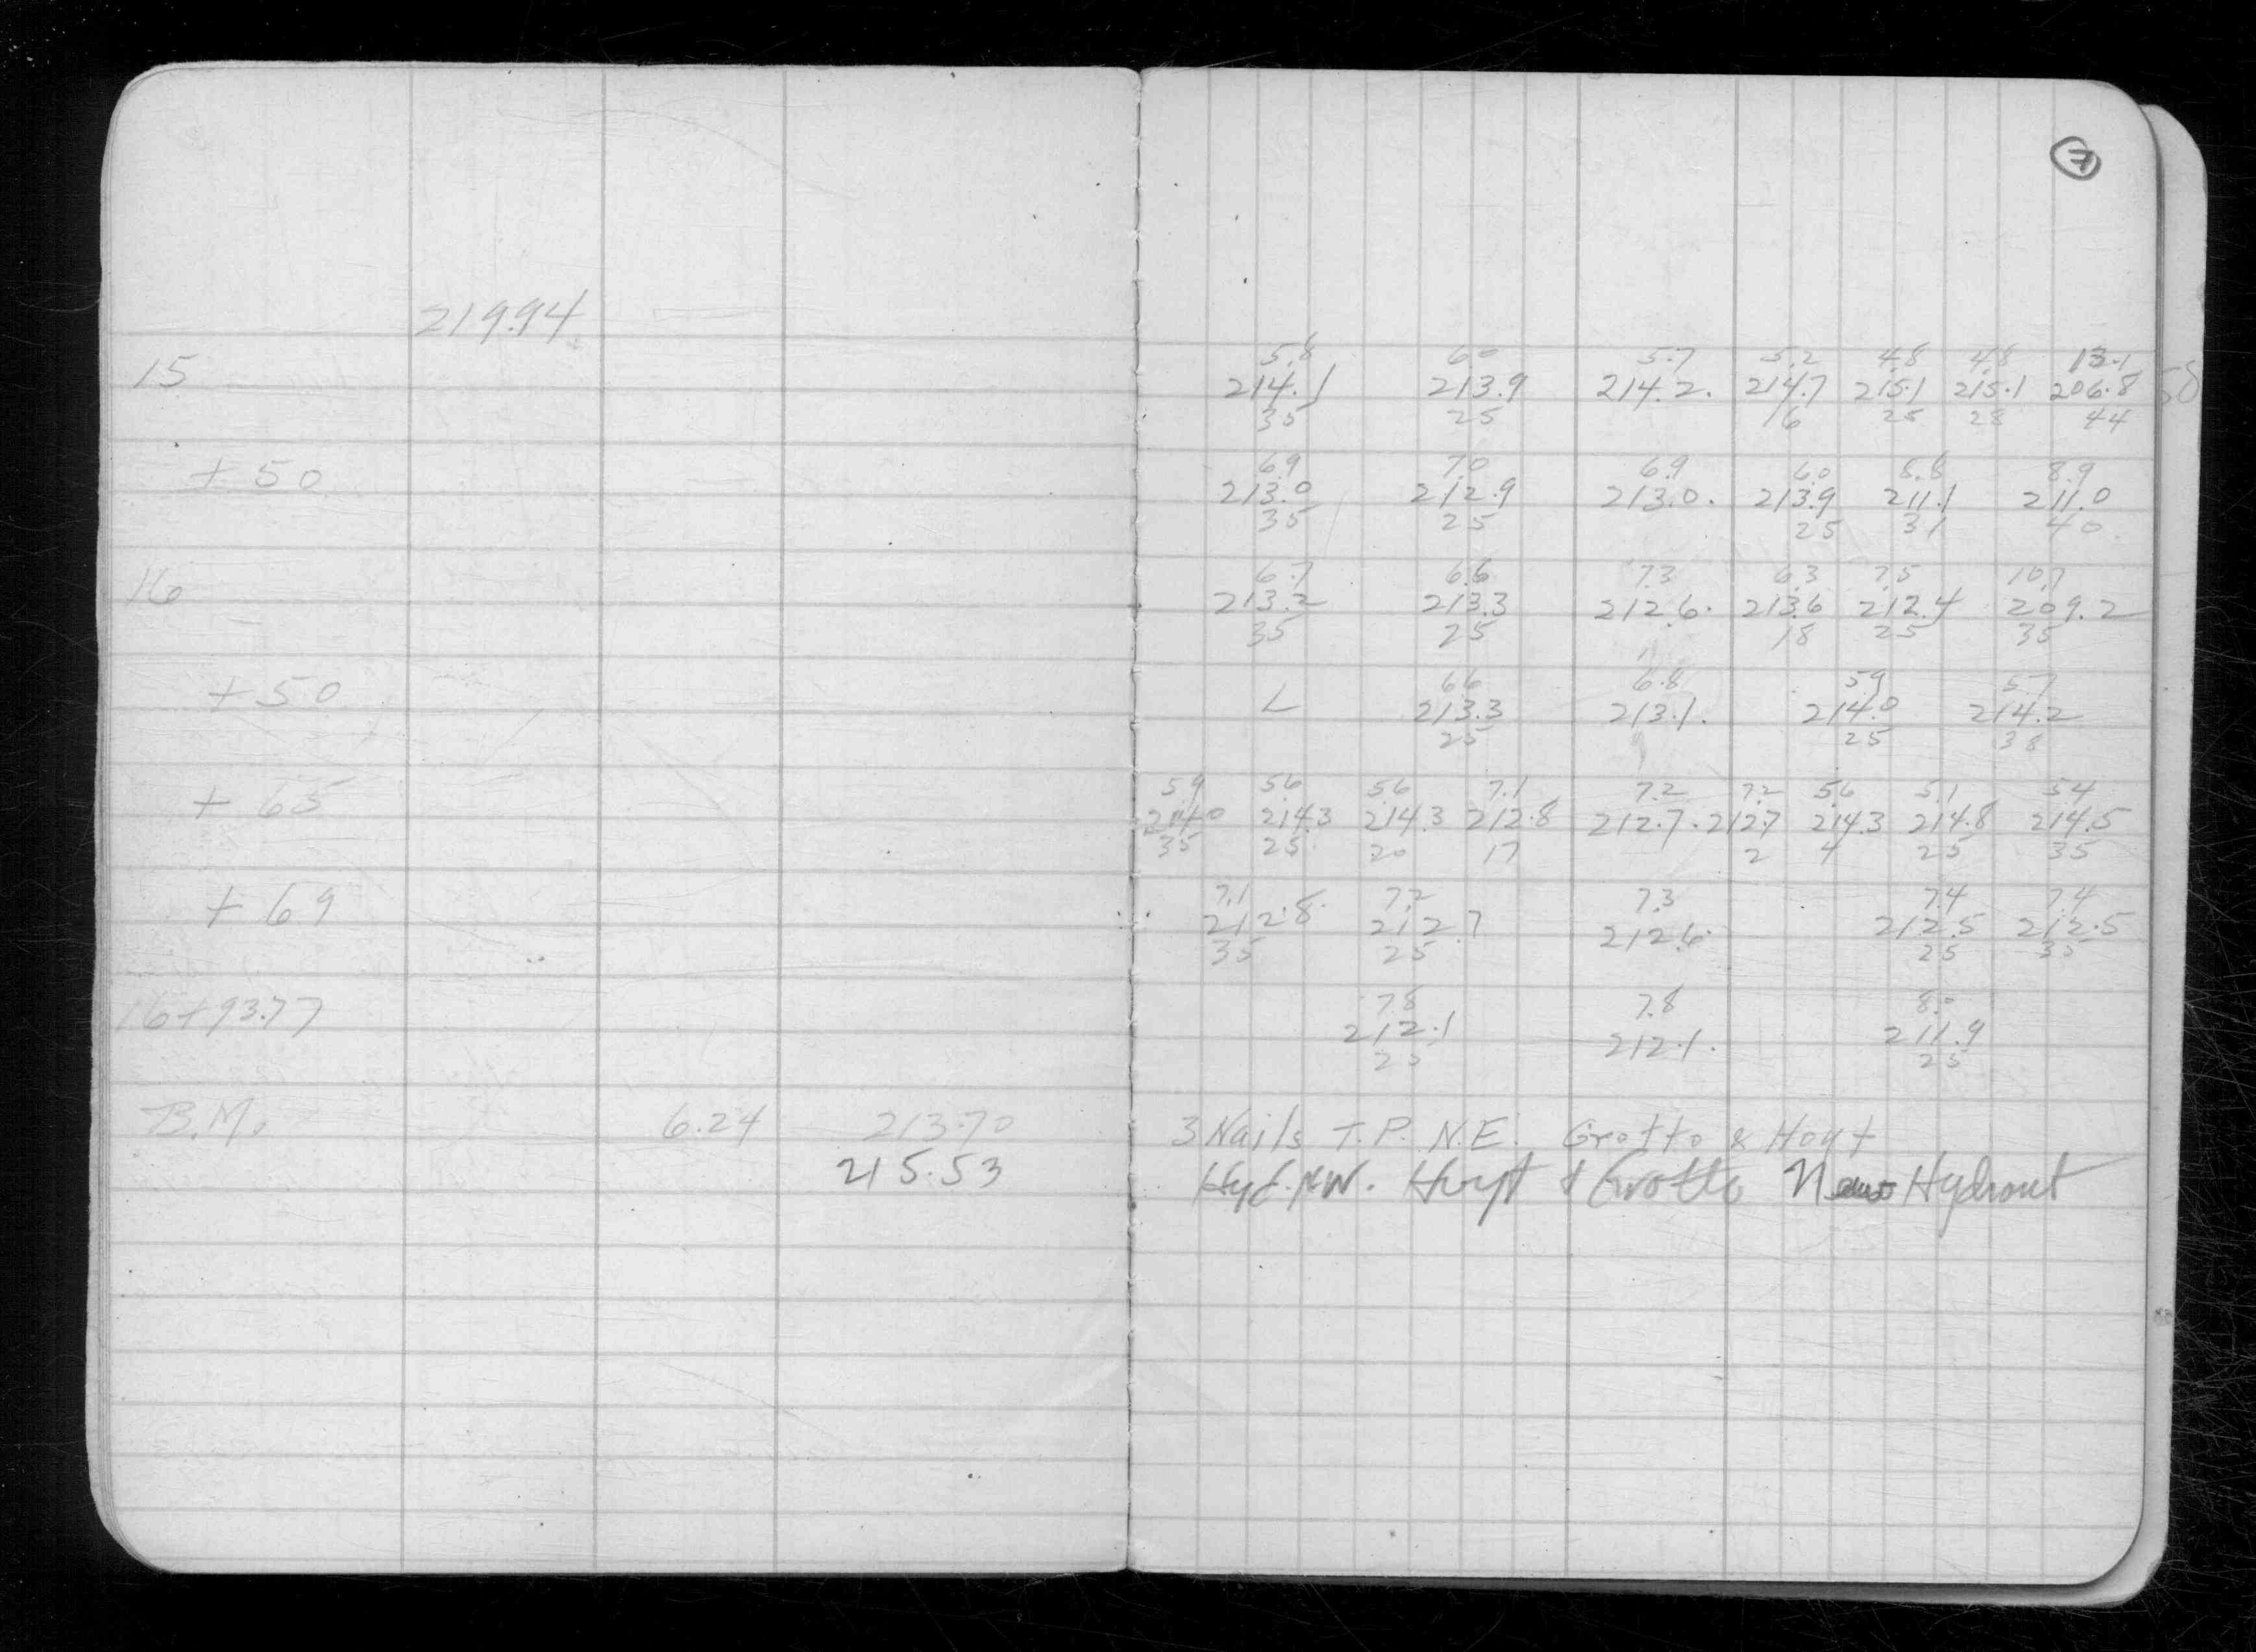 7
219.94
5.8 6.0 5.7 5.2 4.8 4.8 13.1
15 214.1 213.9 214.2. 214.7 215.1 215.1 206.8
35 25 16 25 28 44
6.9 7.0 6.9 6.0 8.8 8.9
+50 213.0 212.9 213.0. 213.9 211.1 211.0
35 25 25 31 40
6.7 6.6 7.3 6.3 7.5 10.7
16 213.2 213.3 212.6. 213.6 212.4 209.2
35 25 18 25 35
6.6 6.8 5.9 5.7
+50 L 213.3 213.1. 214.0 214.2
25 25 38
5.9 5.6 5.6 7.1 7.2 7.2 5.6 5.1 5.4
+65 214.0 214.3 214.3 212.8 212.7. 212.7 214.3 214.8 214.5
35 25 20 17 2 4 25 35
7.1 7.2 7.3 7.4 7.4
+69 212.8 212.7 212.6. 212.5 212.5
35 25 25 35
7.8 7.8 8.0
16+93.77 212.1 212.1. 211.9
25 25
B.M. 6.24 213.70 3 Nails T.P. N.E. Grotto & Hoyt
215.53 Hyd. N.W. Hoyt & Grotto New Hydrant